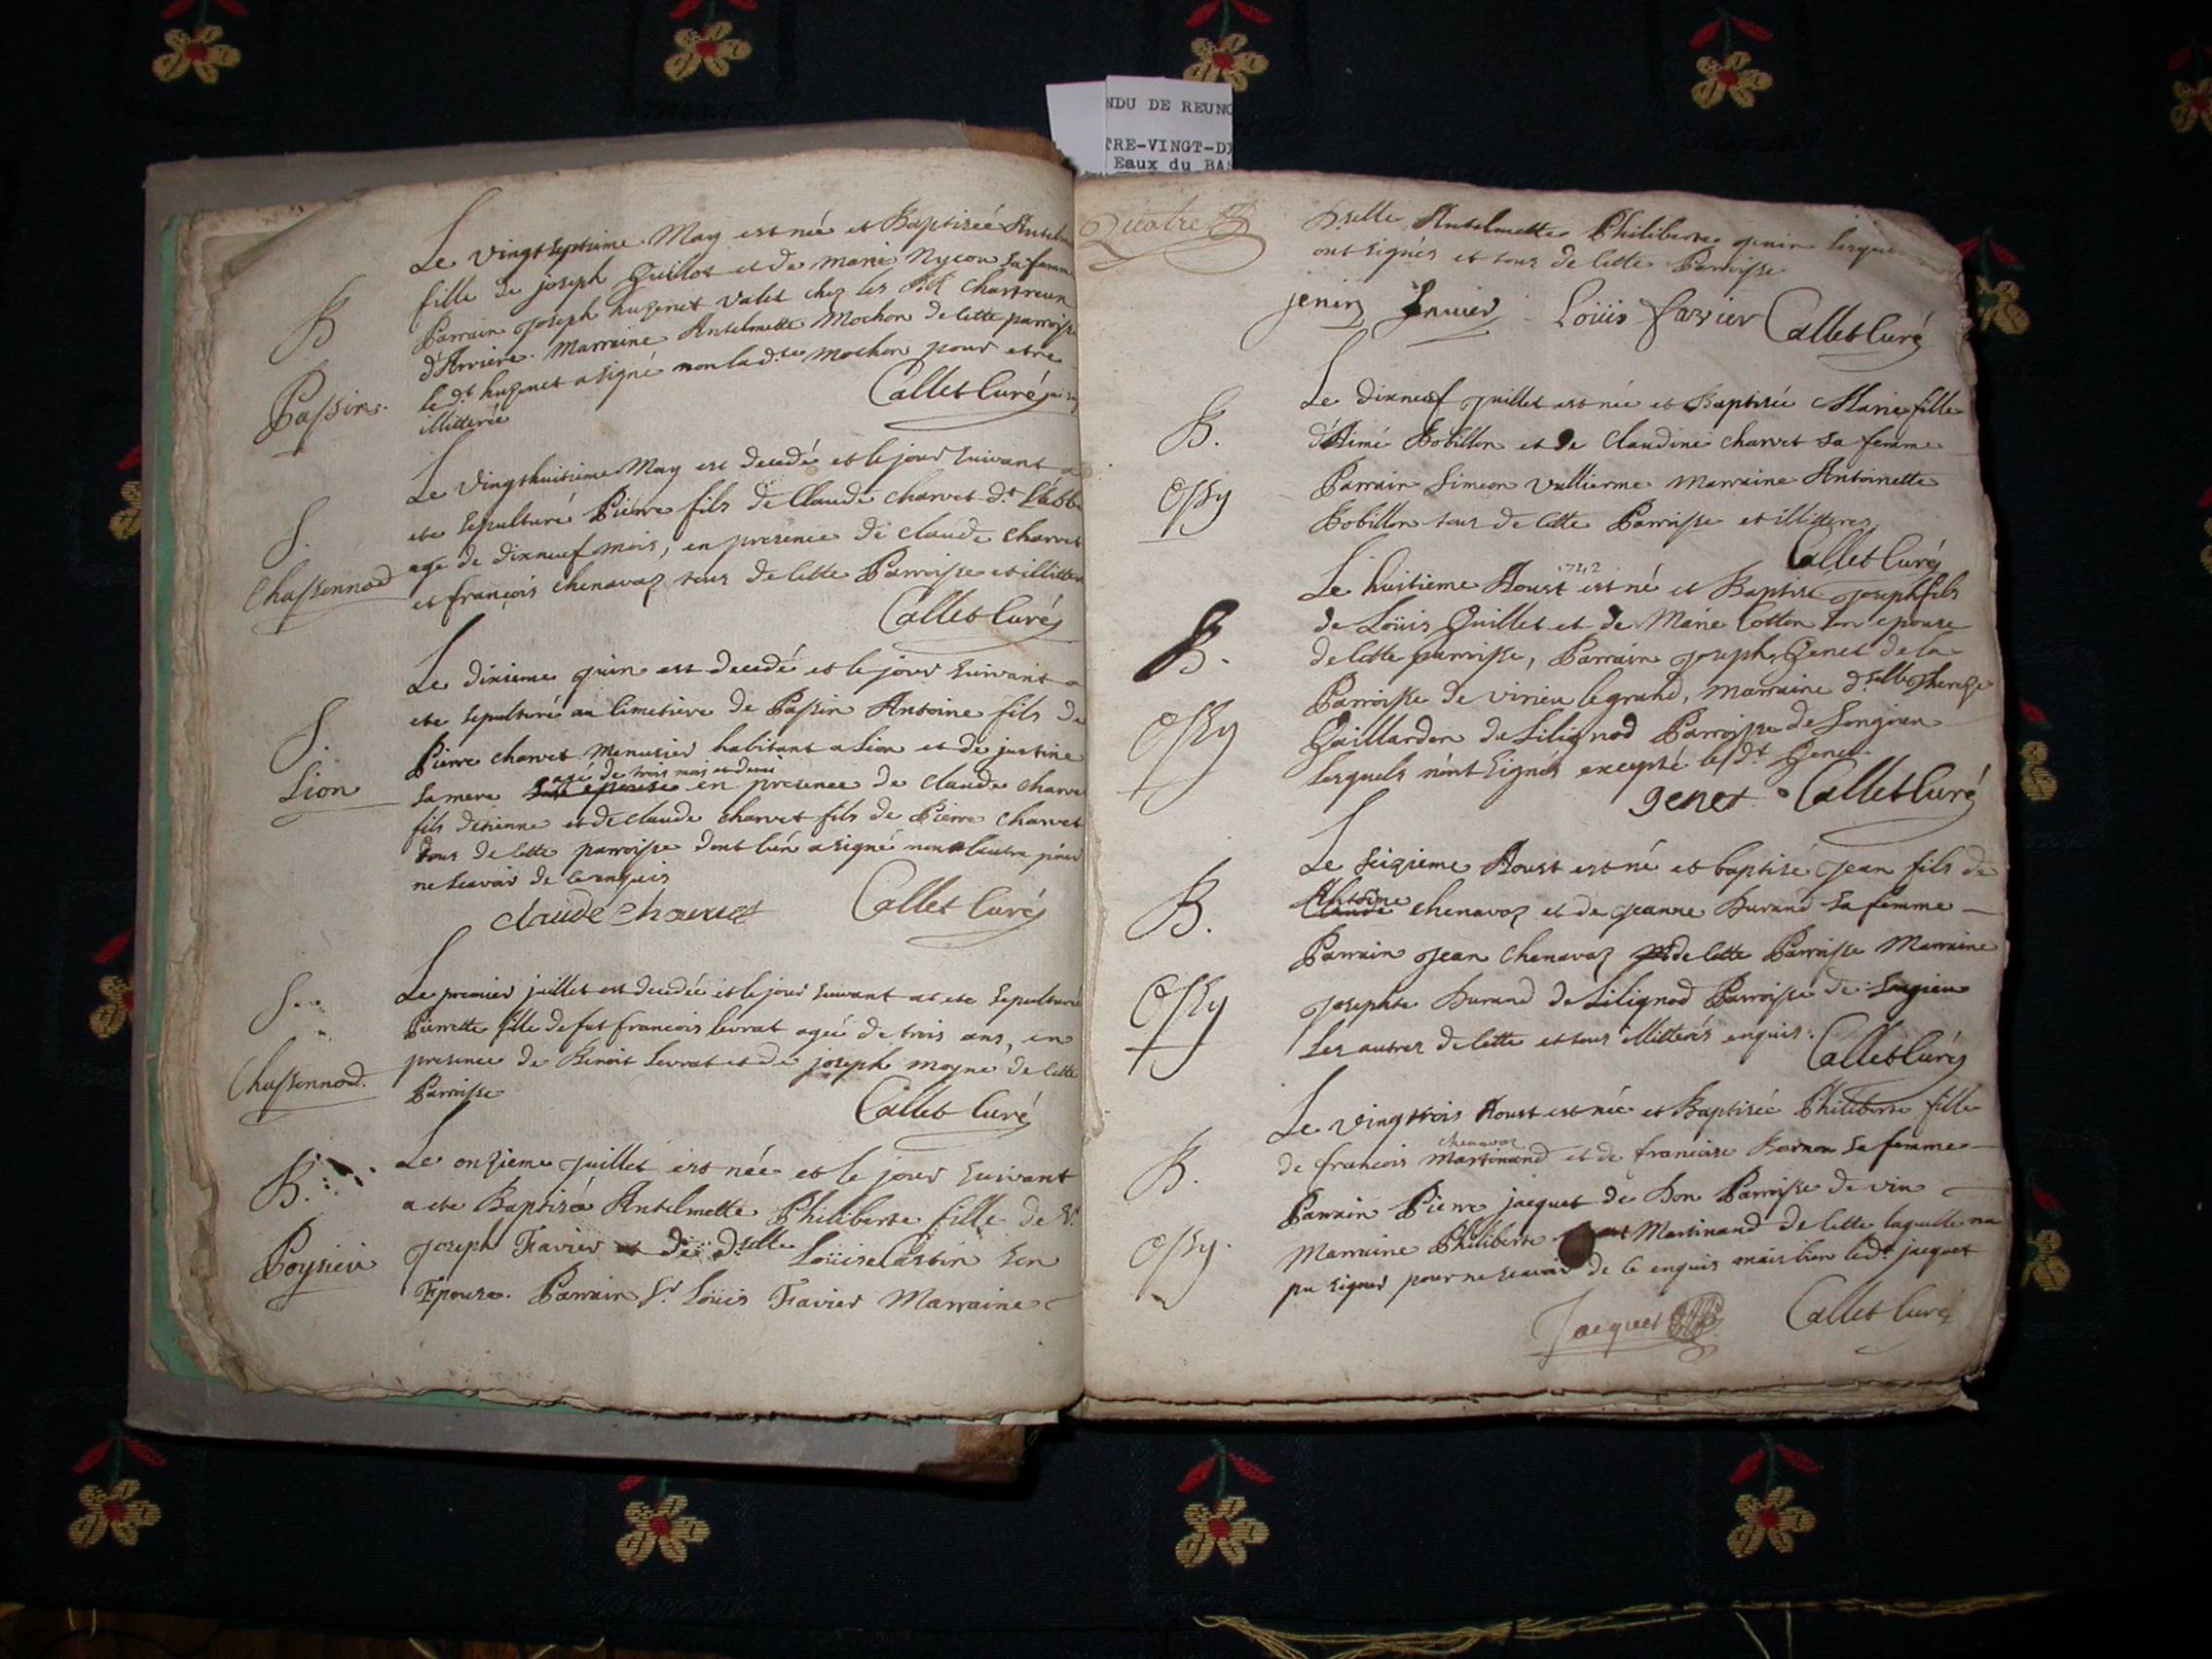 NDU DE REUNO
TRE-VINGT-DI
Eaux du BAS
Le vingtseptieme May est née et Baptisée Anselm
fille de joseph Guillot et de marie Nycon sa femme
B
Parrain joseph huzenet valet chez les RR Chartreux
d'Arviere. Marraine Anselmette Mochon de cette parroisse
Passin.
le dt huzenet a signé non la dte Mochon pour etre
illitterée
Callet Curé
Le vingthuitieme May est decedé et le jour suivant a
S.
ete sepulturé Pierre fils de Claude charvet dt L'abbe
age de dixneuf mois, en presence de claude charvet
Chassonnod
et françois chenavaz tous de cette Parroisse et illitter
Callet Curé
Le dixieme juin est decedé et le jour suivant a
ete sepulturé au cimetiere de Passin Antoine fils de
S.
Pierre charvet Menusier habitant a Lion et de justine
agé de trois mois et demi
Lion
sa mere son epouse en presence de claude charvet
fils detienne et de claude charvet fils de Pierre charvet
tous de cette parroisse dont l'un a signé non l'autre pour
ne scavoir de ce enquis
claude charvet Callet Curé
Le premier juillet est decedée et le jour suivant at ete sepulturé
S.
Pierrette fille de fut francois levrat ageé de trois ans, en
presence de Benoit Levrat et de joseph moyne de cette
Chassonnod.
Parroisse
Callet Curé
Le onzieme juillet est née et le jour suivant
B.
a ete Baptisée Anselmette Philiberte fille de Sr
Poysieu
joseph Favier et de dselle Loüise Castin son
Epouse. Parrain Sr Loüis Favier Marraine
Quatre
Dselle Anselmette Philiberte jenin lesquels
ont signés et tous de cette Parroisse
jenin favier Loüis favier Callet Curé
Le dixneuf juillet est née et Baptisée Marie fille
B.
d'Aimé Bobillon et de claudine charvet sa femme
Ossy
Parrain Simeon Vullierme Marraine Antoinette
Bobillon tous de cette Parroisse et illitteres
Callet Curé
1742
Le huitieme Aoust est né et Baptisé joseph fils
de Loüis Guillet et de Marie Cotton son epouse
B.
de cette parroisse, Parrain joseph Genet de la
Parroisse de virieu le grand, marraine dselle Therese
Ossy
Gaillardon de Lilignod Parroisse de Songieu
lesquels n'ont signés excepté le dt Genet.
genet Callet Curé
Le seizieme Aoust est né et baptisé jean fils de
Antoine
B.
Claude chenavaz et de jeanne Durand sa femme
Parrain jean Chenavaz de cette Parroisse Marraine
Ossy
josephte Durand de Lilignod Parroisse de Songieu
les autres de cette et tous illitterés enquis.
Callet Curé
Le vingttrois Aoust est née et Baptisée Philiberte fille
chenavaz
B.
de francois Martinand et de francoise Bornon sa femme
Parrain Pierre jacquet de Don Parroisse de vin
Ossy.
Marraine Philiberte Martinand de cette laquelle na
pu signer pour ne scavoir de ce enquis mais bien le dt jacquet
Jacquet Callet Curé